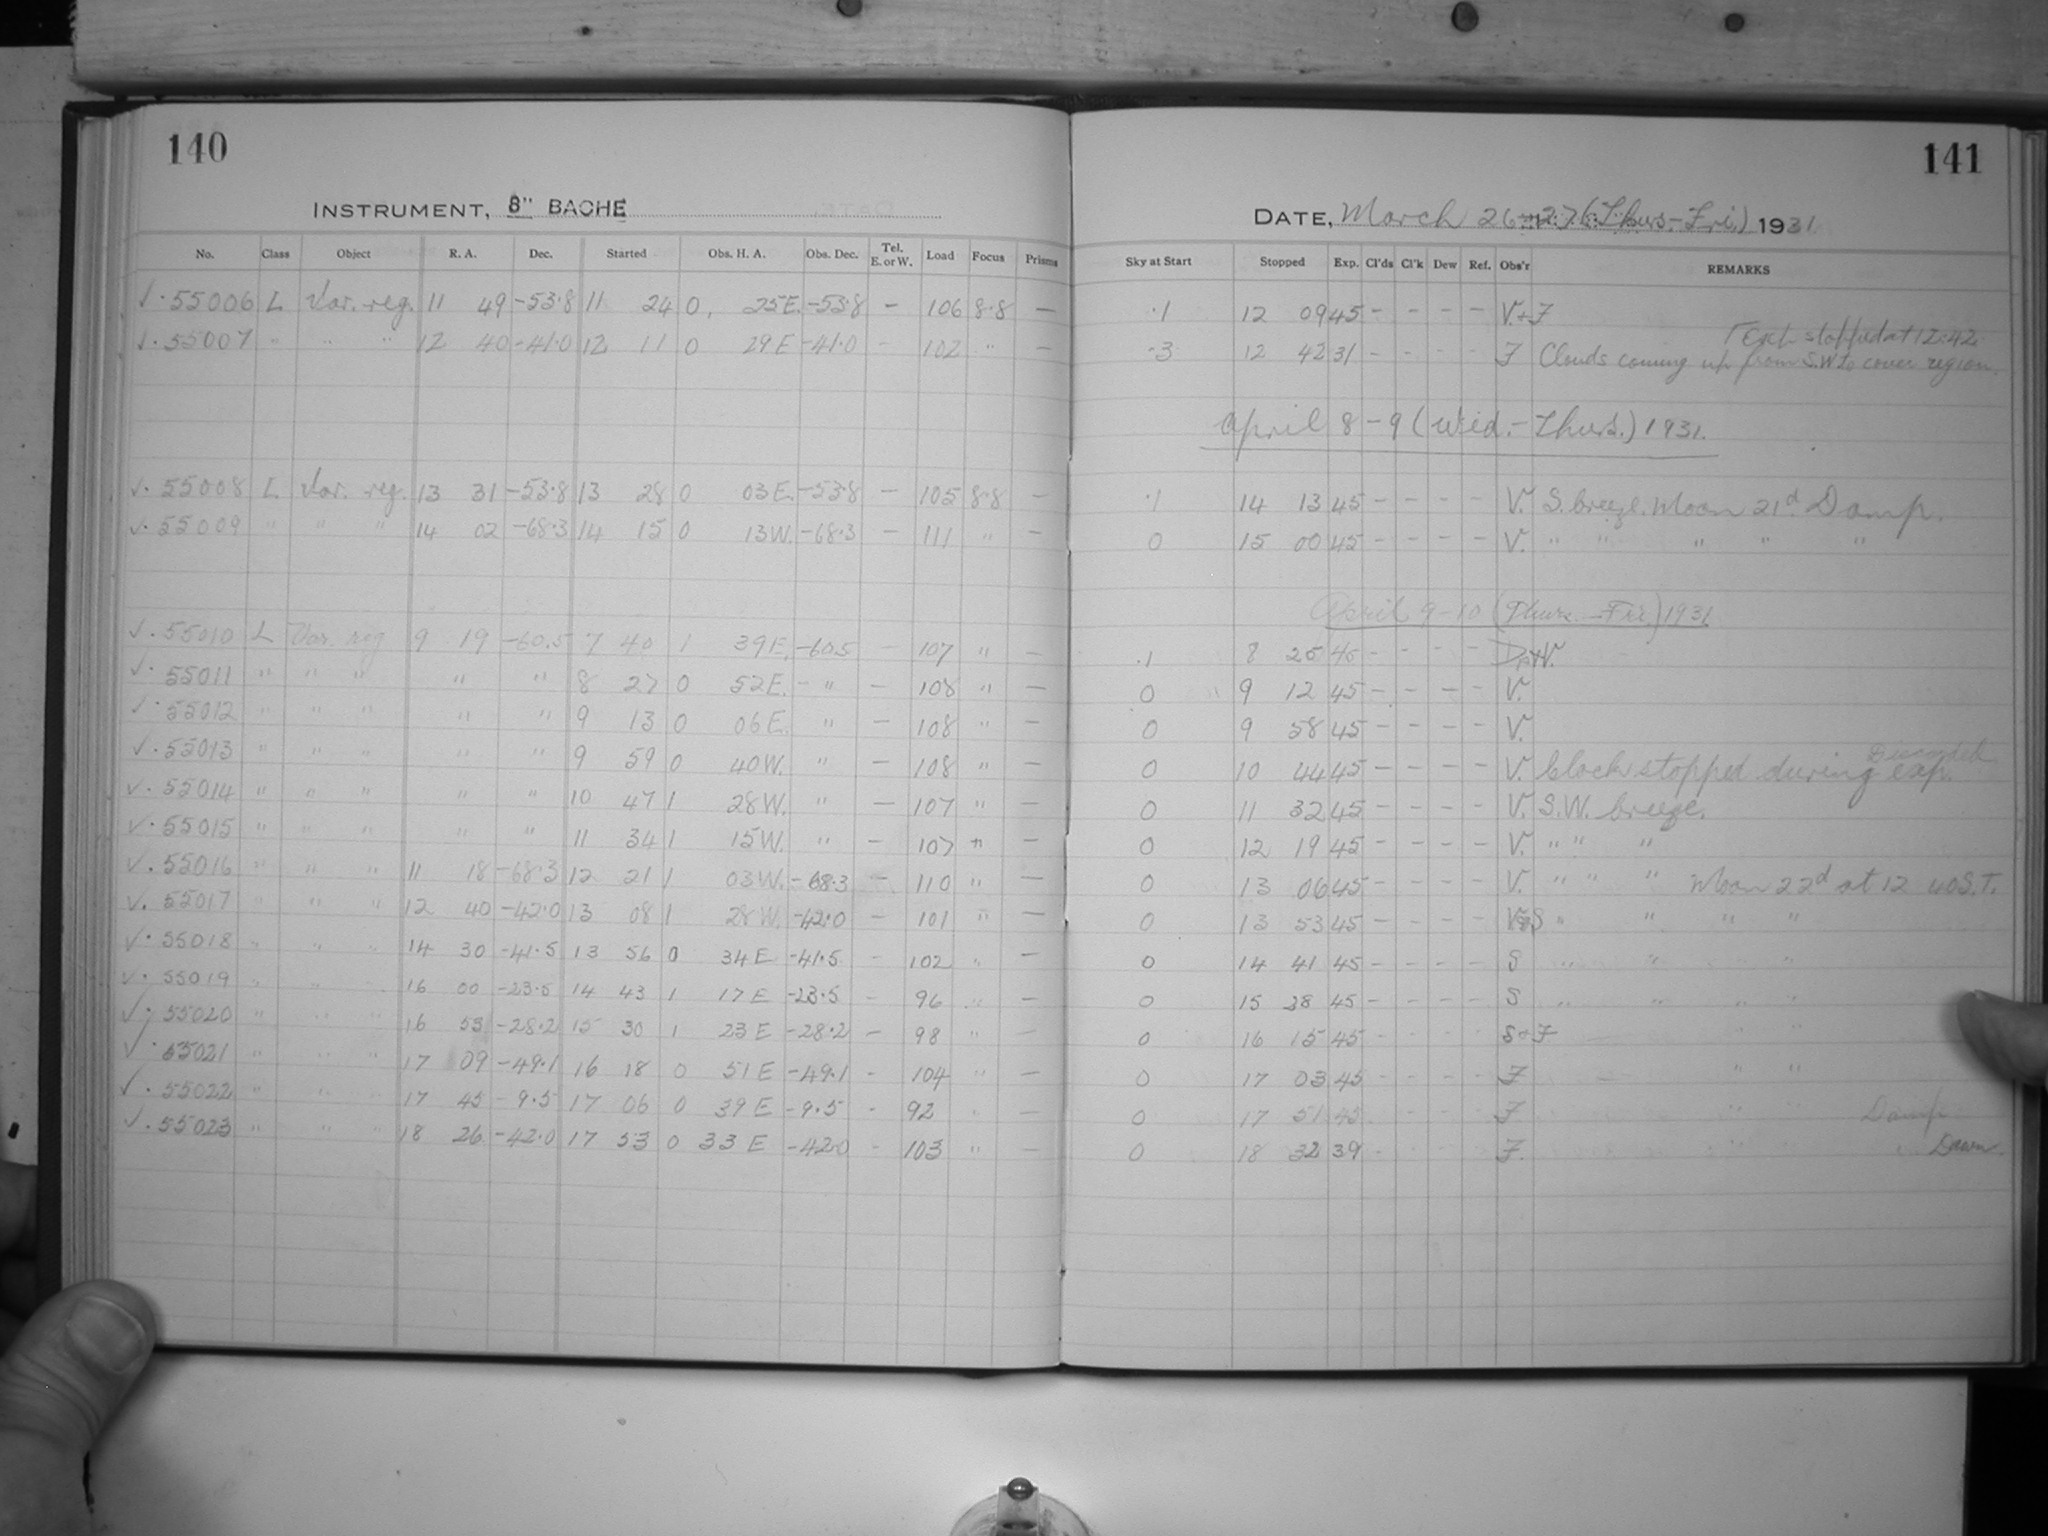 140
INSTRUMENT, 8" BACHE
No. Class Object R. A. Dec. Started Obs. H. A. Obs. Dec. Tel. E. or W. Load Focus Prisms
√. 55006 L Var. reg. 11 49 -53.8 11 24 0 25E. -53.8 - 106 8.8 -
√. 55007 " " " 12 40 -41.0 12 11 0 29E -41.0 - 102 " -
√. 55008 L Var. reg. 13 31 -53.8 13 28 0 03E. -53.8 - 105 8.8 -
√. 55009 " " " 14 02 -68.3 14 15 0 13W. -68.3 - 111 " -
√. 55010 L Var. reg 9 19 -60.5 7 40 1 39E. -60.5 - 107 " -
√. 55011 " " " " " 8 27 0 52E. - " - 108 " -
√. 55012 " " " " " 9 13 0 06E. " - 108 " -
√. 55013 " " " " " 9 59 0 40W. " - 108 " -
√. 55014 " " " " " 10 47 1 28W. " - 107 " -
√. 55015 " " " " " 11 34 1 15W. " - 107 " -
√. 55016 " " " 11 18 -68.3 12 21 1 03W. -68.3 - 110 " -
√. 55017 " " " 12 40 -42.0 13 08 1 28W. -42.0 - 101 " -
√. 55018 " " " 14 30 -41.5 13 56 0 34E -41.5 - 102 " -
√. 55019 " " " 16 00 -23.5 14 43 1 17E -23.5 - 96 " -
√. 55020 " " " 16 53 -28.2 15 30 1 23E -28.2 - 98 " -
√. 55021 " " " 17 09 -49.1 16 18 0 51E -49.1 - 104 " -
√. 55022 " " " 17 45 -9.5 17 06 0 39E -9.5 - 92 " -
√. 55023 " " " 18 26 -42.0 17 53 0 33E -42.0 - 103 " -
141
DATE, March 26-27 (Thurs.-Fri.) 1931
Sky at Start Stopped Exp. Cl'ds Cl'k Dew Ref. Obs'r REMARKS
.1 12 09 45 - - - - V.+F
Exp. stopped at 12:42.
.3 12 42 31 - - - - F Clouds coming up from S.W to cover region.
April 8-9 (Wed.-Thurs.) 1931.
.1 14 13 45 - - - - V. S. breeze. Moon 21d. Damp.
0 15 00 45 - - - - V. " " " " "
April 9-10 (Thurs.-Fri.) 1931
.1 8 25 45 - - - -
0 9 12 45 - - - - V.
0 9 58 45 - - - - V.
0 10 44 45 - - - - V. Clock stopped during exp. Discarded
0 11 32 45 - - - - V. S.W. breeze.
0 12 19 45 - - - - V. " " "
0 13 06 45 - - - - V. " " " Moon 22d at 12 40 S.T.
0 13 53 45 - - - - V+S " " " "
0 14 41 45 - - - - S " " "
0 15 28 45 - - - - S " " " "
0 16 15 45 - - - - S+F " "
0 17 03 45 - - - - F " "
0 17 51 45 - - - - F " " Damp
0 18 32 39 - - - - F. " " Dawn.